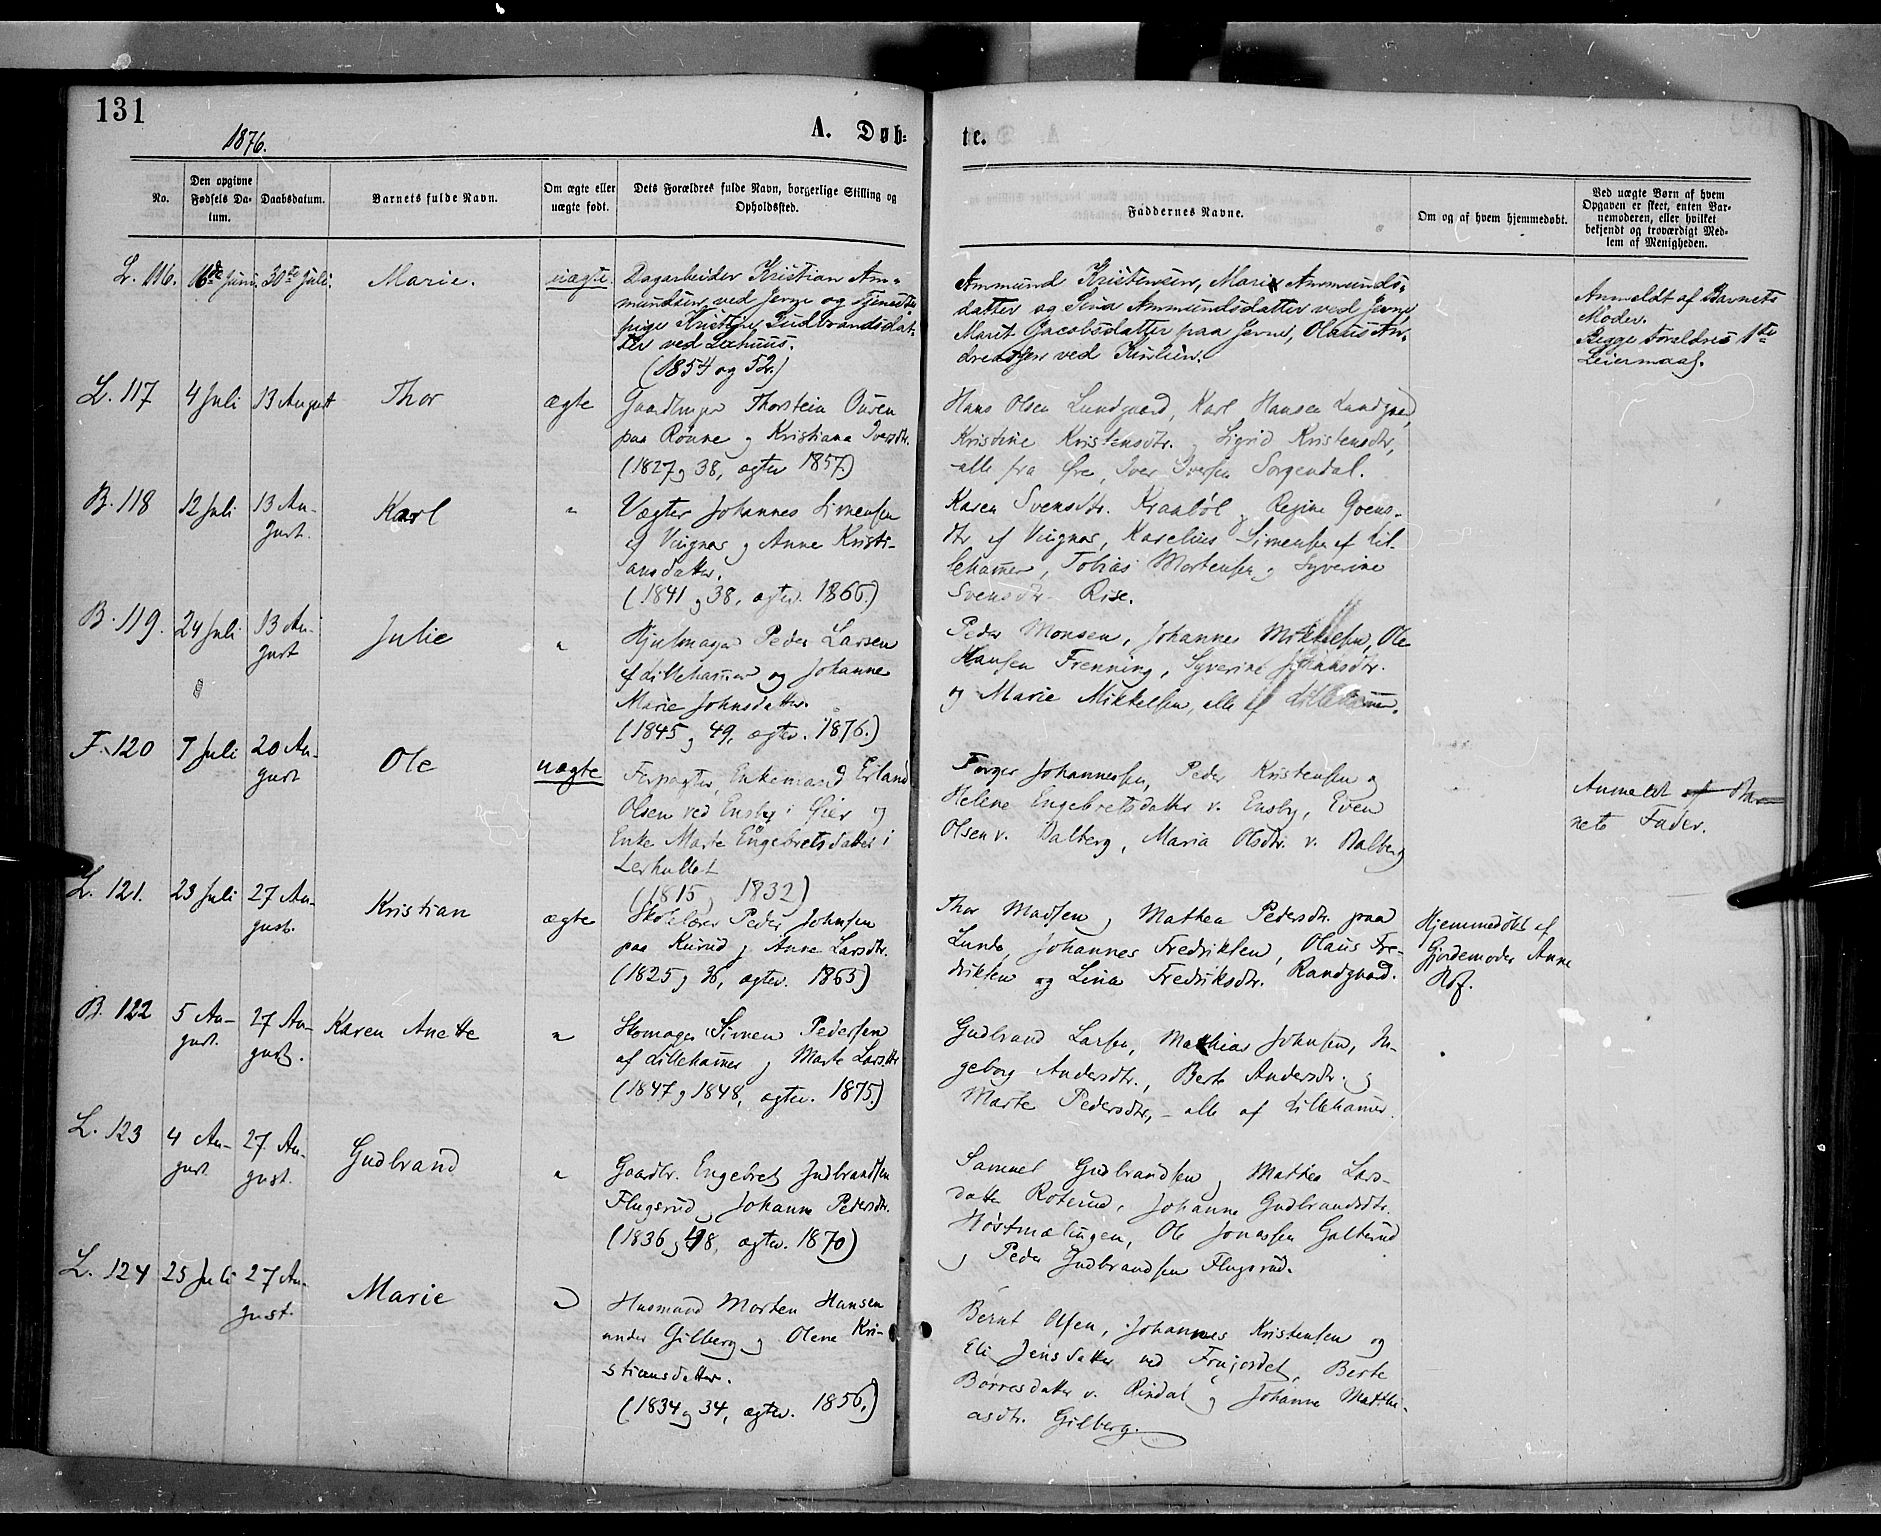 131
1876.
A. Døb-
te.
No.
Den opgivne
Fødsels Da-
tum.
Daabsdatum.
Barnets fulde Navn.
Om ægte eller
uægte født.
Dets Forældres fulde Navn, borgerlige Stilling og
Opholdssted.
Faddernes Navne.
Om og af hvem hjemmedøbt.
Ved uægte Børn af hvem
Opgaven er skeet, enten Bar-
nemoderen, eller hvilket
bekjendt og troværdigt Med-
lem af Menigheden.
L. 116.
Juni.
30te Juli.
Marie.
uægte.
Dagarbeider Kristian Am-
mundsen ved Jevne og Tjeneste-
pige Kristine Gudbrandsdat-
ter ved
(1854 og 52.)
Ammund Kristensen, Marie Ammunds-
datter og Ammundsdatter ved Jevne,
Marit Jacobsdatter paa Jevne, Olaus An-
dreassen ved
Anmeldt af Barnets
Moder.
Begge Forældres 1te
Leiermaal.
L. 117
4 Juli
13 August
Thor
ægte
Gaardbruger Thorstein Ouren
paa Rønne og Kristiana Iversdtr.
(1827 og 38, ægtev. 1857.)
Hans Olsen Lundgaard, Karl Hansen Lundgaard,
Kristine Kristensdtr. og Sigrid Kristensdtr,
alle fra Øre, Iver Iversen Sorgendal.
B. 118
12 Juli
13 Au-
gust.
Karl
"
Vægter Johannes Simensen
af Vingnæs og Anne Kristi-
ansdatter.
(1841 og 38, ægtev. 1866.)
Karen Svensdtr. Kraabøl og Regine
dtr af Vingnæs, Karelius Simensen af Lil-
lehamer, Tobias Mortensen og Syverine
Svensdtr Rise.
B. 119.
24 Juli
13 Au-
gust
Julie
"
Hjulmager Peder Larsen
af Lillehamer og Johanne
Marie Johnsdatter.
(1845 og 49, ægtev. 1876.)
Peder Monsen, Johannes Mikkelsen, Ole
Hansen Frenning, Syverine
og Marie Mikkelsen, alle af Lillehamer.
F. 120
7 Juli
20 Au-
gust
Ole
uægte
Forpagter, Enkemand Erland
Olsen ved Ensby i Øier og
Enke Marte Engebretsdatter i
Lerhullet
(1815, 1832)
Torger Johannessen, Peder Kristensen og
Helene Engebretsdatter v. Ensby, Even
Olsen v. Dalberg, Maria Olsdtr. v. Dalberg
Anmeldt af Bar-
nets Fader.
L. 121.
23 Juli
27 Au-
gust.
Kristian
ægte
Skolelærer Peder Johnsen
paa og Anne Larsdtr.
(1825 og 36, ægtev. 1863)
Thor Madsen og Mathea Pedersdtr. paa
Lunde, Johannes Fredriksen, Olaus Fre-
driksen og Lina Fredriksdtr. Randgaard.
Hjemmedøbt af
Gjordemoder Anne
Hof.
B. 122
5 Au-
gust.
27 Au-
gust.
Karen Anette
"
Skomager Simen Pedersen
af Lillehamer og Marte Larsdtr
(1847 og 1848, ægtev. 1875.)
Gudbrand Larsen, Mathias Johnsen, In-
geborg Andersdtr., Berte Andersdtr. og
Marte Pedersdtr, - alle af Lillehamer.
L. 123
4 Au-
gust
27 Au-
gust.
Gudbrand
"
Gaardbr. Engebret Gudbrandsen
Flugsrud og Johanne Pedersdtr.
(1836 og 48, ægtev. 1870)
Samuel Gudbrandsen og Mathea Lars-
datter Roterud, Johanne Gudbrandsdtr.
Høstmælingen, Ole Jonassen Galterud
og Peder Gudbrandsen Flugsrud.
L. 124
25 Juli
27 Au-
gust.
Marie
"
Husmand Morten Hansen
under Gilberg og Olene Kri-
stiansdatter.
(1834 og 34, ægtev. 1856.)
Bernt Olsen, Johannes Kristensen og
Eli Jensdatter ved Frujordet, Berte
Børresdatter v. Rindal og Johanne Matthi-
asdtr. Gilberg.